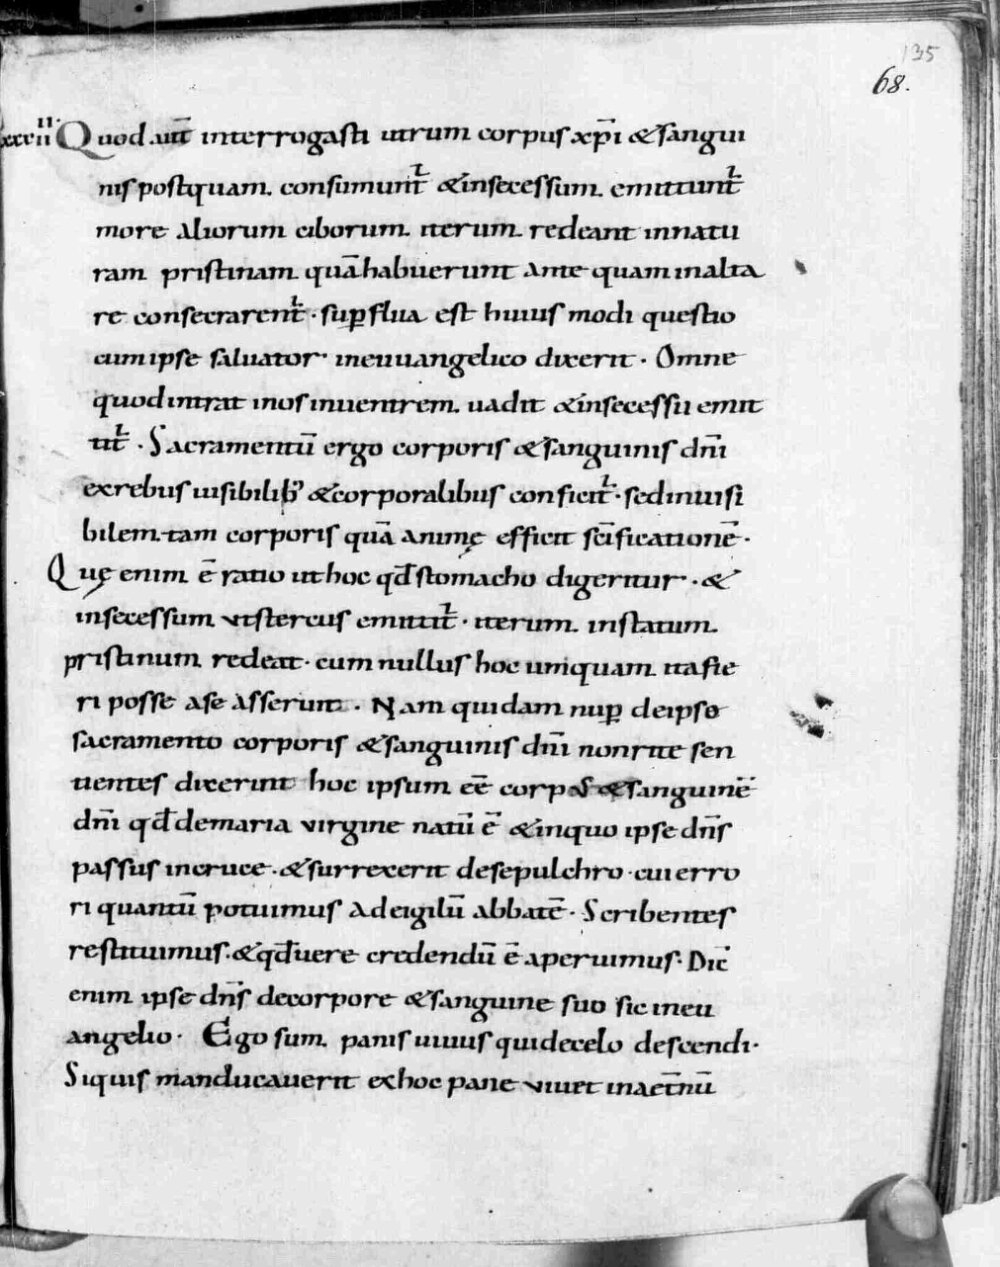 135
68.
xxxiii Quod aut̄ interrogasti utrum corpus xp̄i & sangui
nis postquam consumunt̄ & insecessum emittunt̄
more aliorum ciborum iterum redeant innatu
ram pristinam quā habuerunt ante quam inalta
re consecrarent̄ · sup̱flua est huius modi questio
cum ipse saluator · ineuuangelico dixerit · Omne
quod intrat inos inuentrem uadit & insecessū emit
tit̄ · Sacramentū ergo corporis & sanguinis dn̄i
exrebus uisibilib; & corporalibus conficit̄ · sed inuisi
bilem tam corporis quā animę efficit sc̄ificationē ·
Quę enim ē ratio ut hoc qd̄ stomacho digeritur · &
insecessum ut stercus emittit̄ · iterum instatum
pristinum redeat · cum nullus hoc umquam ita fie
ri posse ase asserunt · Nam quidam nup̱ deipso
sacramento corporis & sanguinis dn̄i nonrite sen
tientes dixerint hoc ipsum eē corpus & sanguinē
dn̄i qd̄ demaria virgine natū ē & inquo ipse dn̄s
passus incruce · & surrexerit desepulchro · cui erro
ri quantū potuimus ad eigilū abbatē · Scribentes
restituimus · & qd̄ uere credendū ē aperuimus · Dic̄
enim ipse dn̄s decorpore & sanguine suo sic ineu
angelio · Ego sum panis uiuus quidecelo descendi ·
Siquis manducauerit exhoc pane viuet inaet̄nū